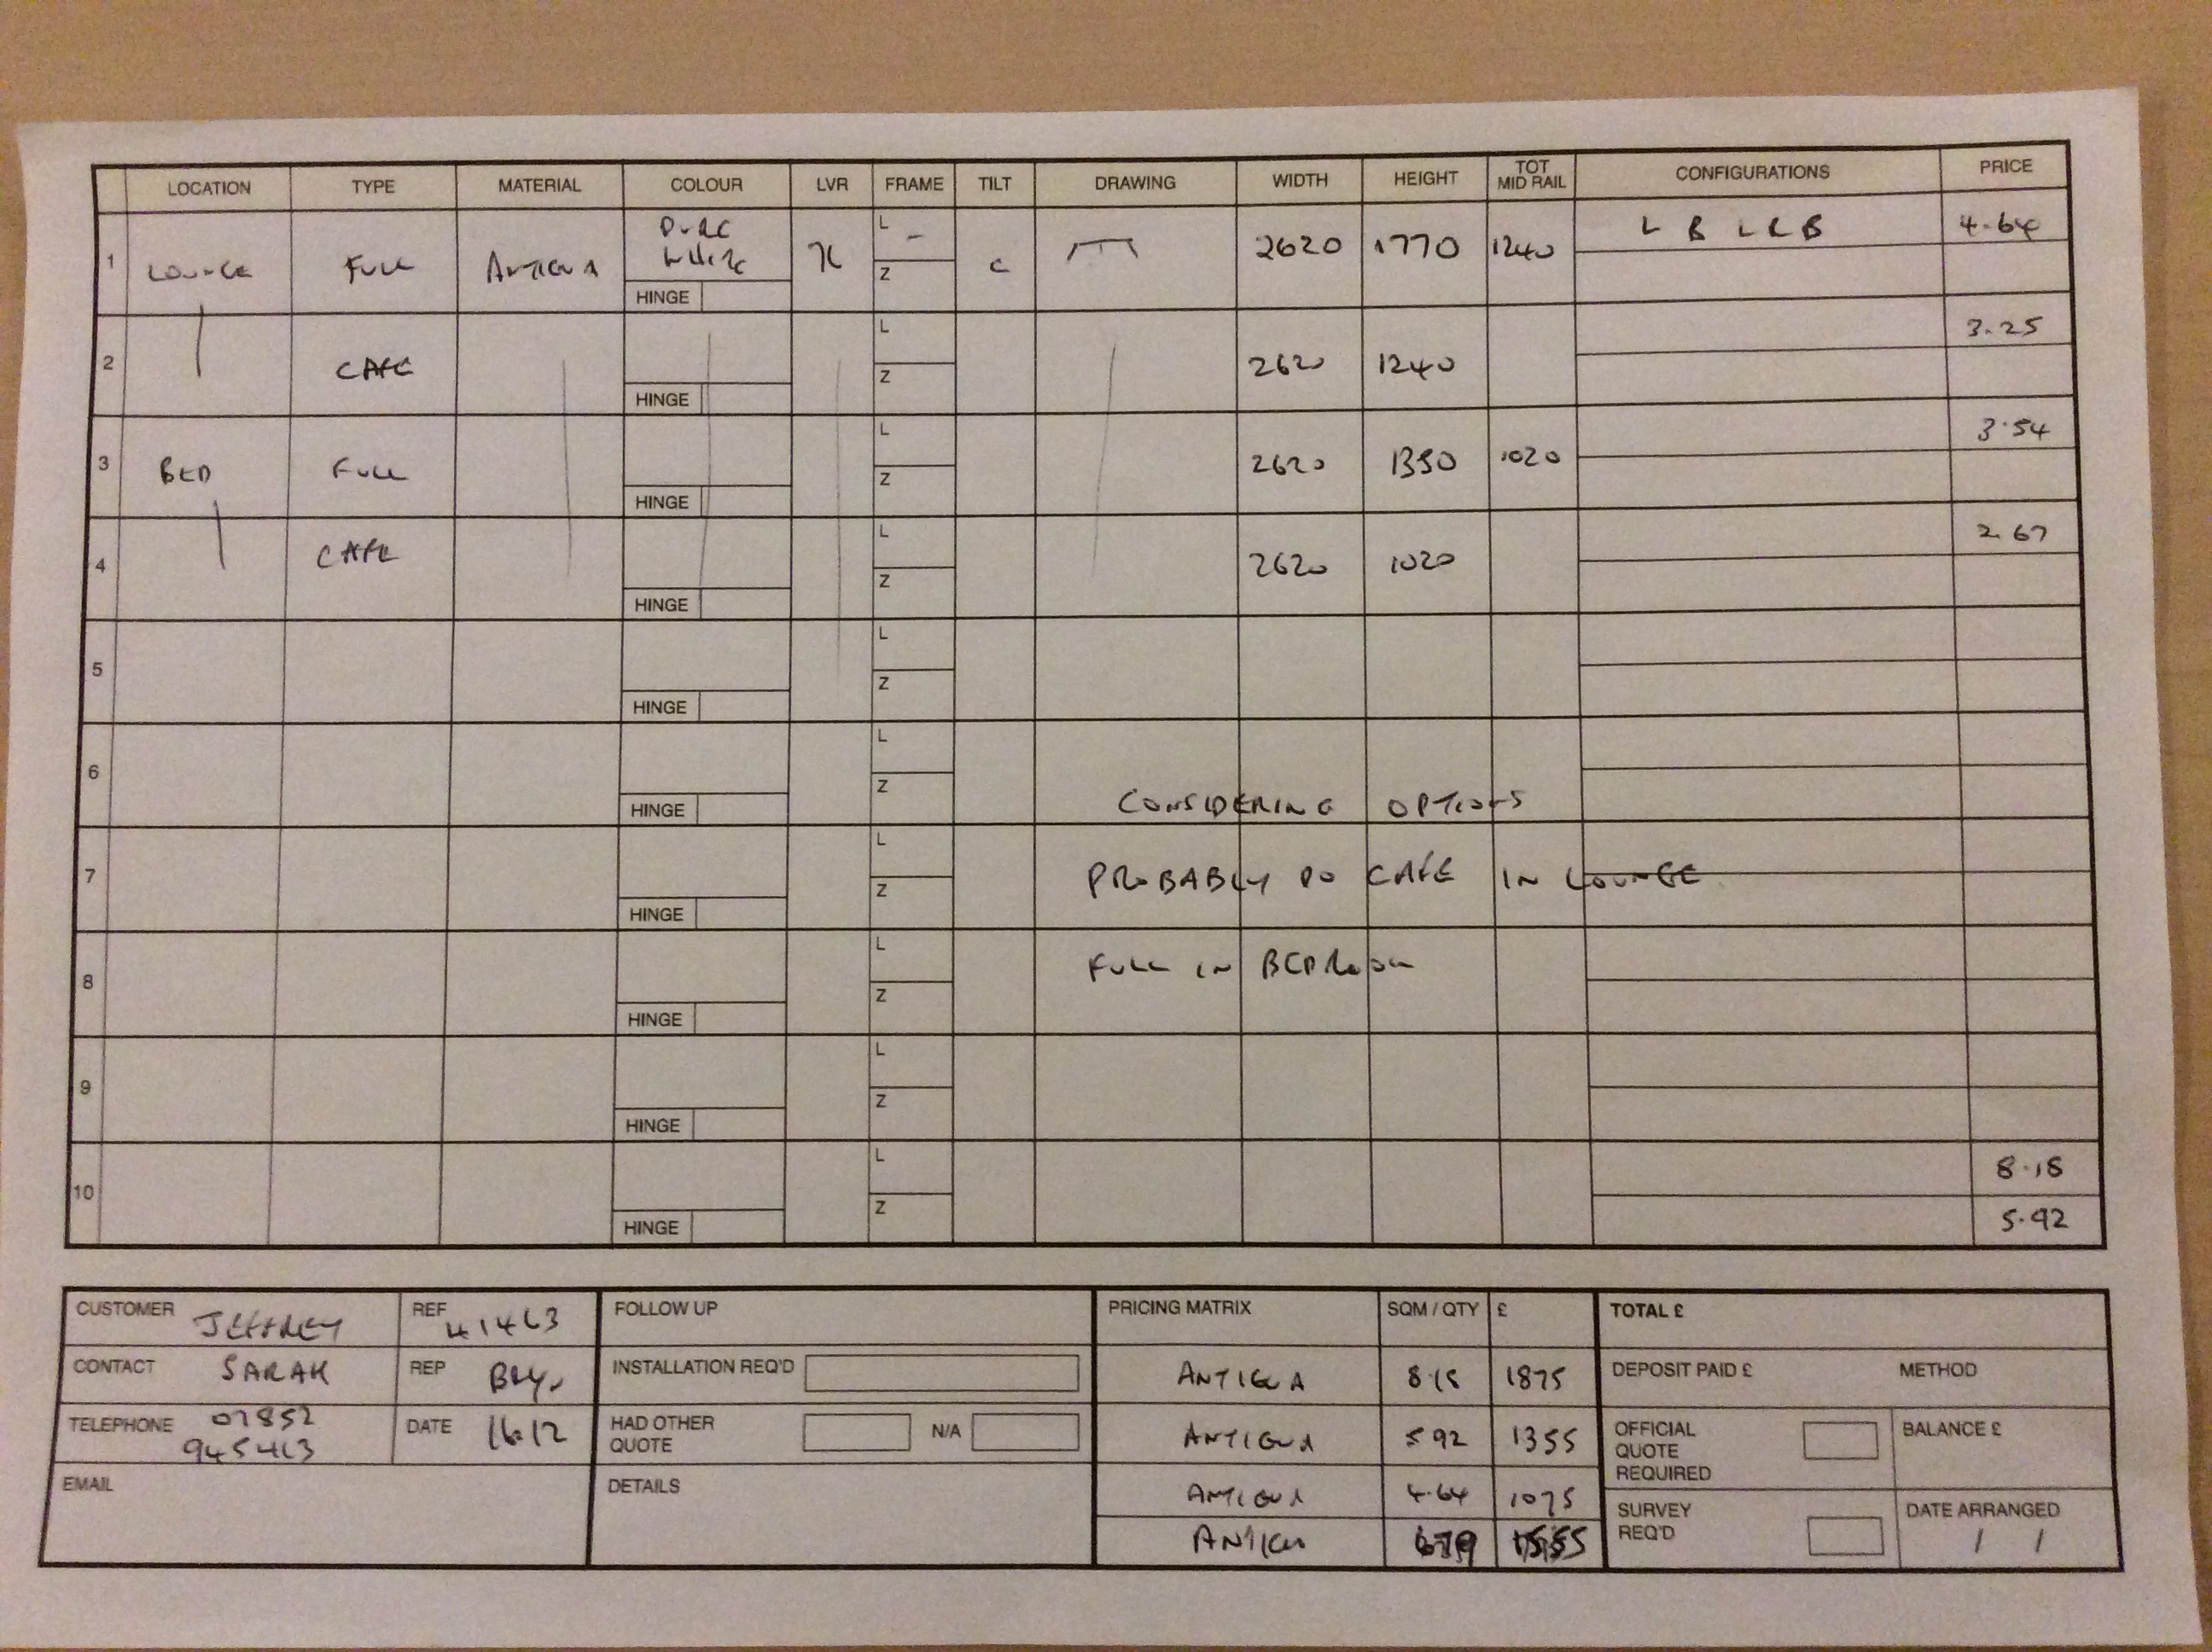 LOCATION TYPE MATERIAL COLOUR LVR FRAME TILT DRAWING WIDTH HEIGHT TOT MID RAIL CONFIGURATIONS PRICE
1 LOUNGE FULL ANTIGUA PURE WHITE HINGE L - Z C 2620 1770 1240 L R L R B 4.64
2 CAFE HINGE L Z 2620 1240 3.25
3 BED FULL HINGE L Z 2620 1350 1020 3.54
4 CAFE HINGE L Z 2620 1020 2.67
5 HINGE L Z
6 HINGE L Z
CONSIDERING OPTIONS
7 HINGE L Z
PROBABLY DO CAFE IN LOUNGE
8 HINGE L Z
FULL IN BEDROOM
9 HINGE L Z
10 HINGE L Z 8.18
5.92
CUSTOMER JEFFREY REF 41463
CONTACT SARAH REP
TELEPHONE 07852
945413
DATE 16.12
EMAIL
FOLLOW UP
INSTALLATION REQ'D
HAD OTHER QUOTE N/A
DETAILS
PRICING MATRIX SQM / QTY £
ANTIGUA 8.18 1875
ANTIGUA 5.92 1355
ANTIGUA 4.64 1075
ANTIGUA 6.79 1555
TOTAL £
DEPOSIT PAID £ METHOD
OFFICIAL QUOTE REQUIRED BALANCE £
SURVEY REQ'D DATE ARRANGED
/ /